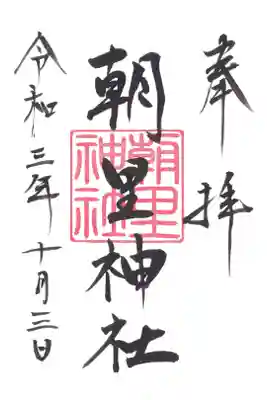 奉拝
朝里神社
朝里神社
令和三年十月三日